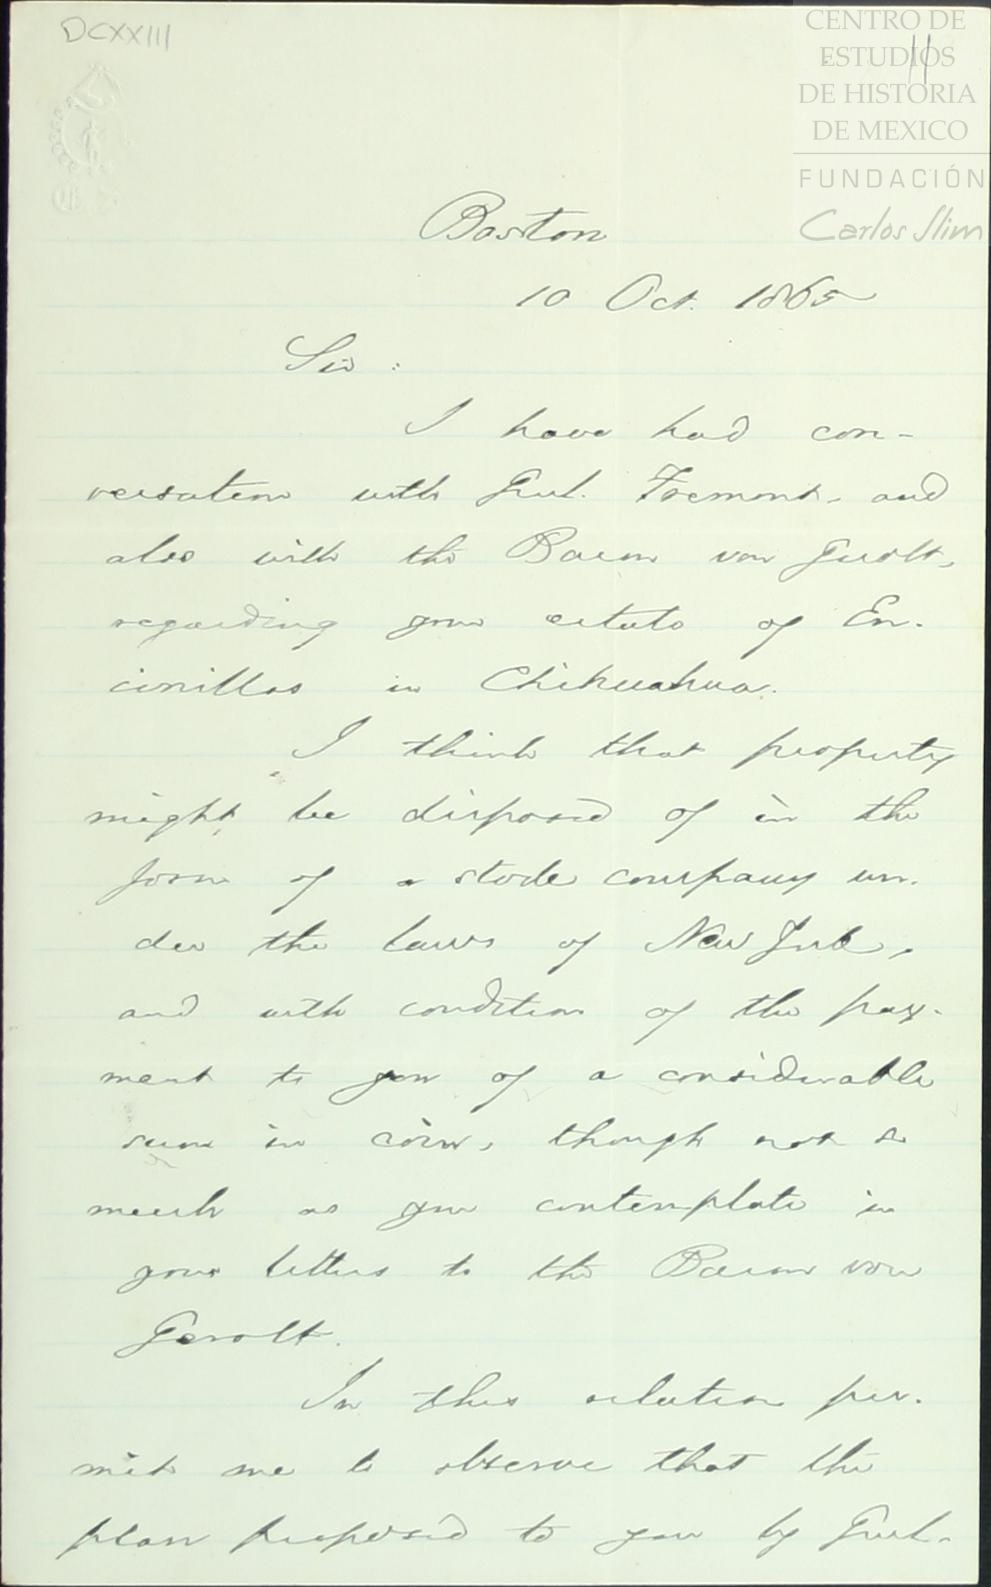 DCXXIII
11
CENTRO DE
ESTUDIOS
DE HISTORIA
DE MEXICO
FUNDACIÓN
Carlos Slim
Boston
10 Oct. 1865
Sir:
I have had con-
versation with Genl. Fremont, and
also with the Baron von Gerolt,
regarding your estate of En-
cinillas in Chihuahua.
I think that property
might be disposed of in the
form of a stock company un-
der the laws of New York,
and with condition of the pay-
ment to you of a considerable
sum in coin, though not so
much as you contemplate in
your letters to the Baron von
Gerolt.
In this relation per-
mit me to observe that the
plan proposed to you by Genl.